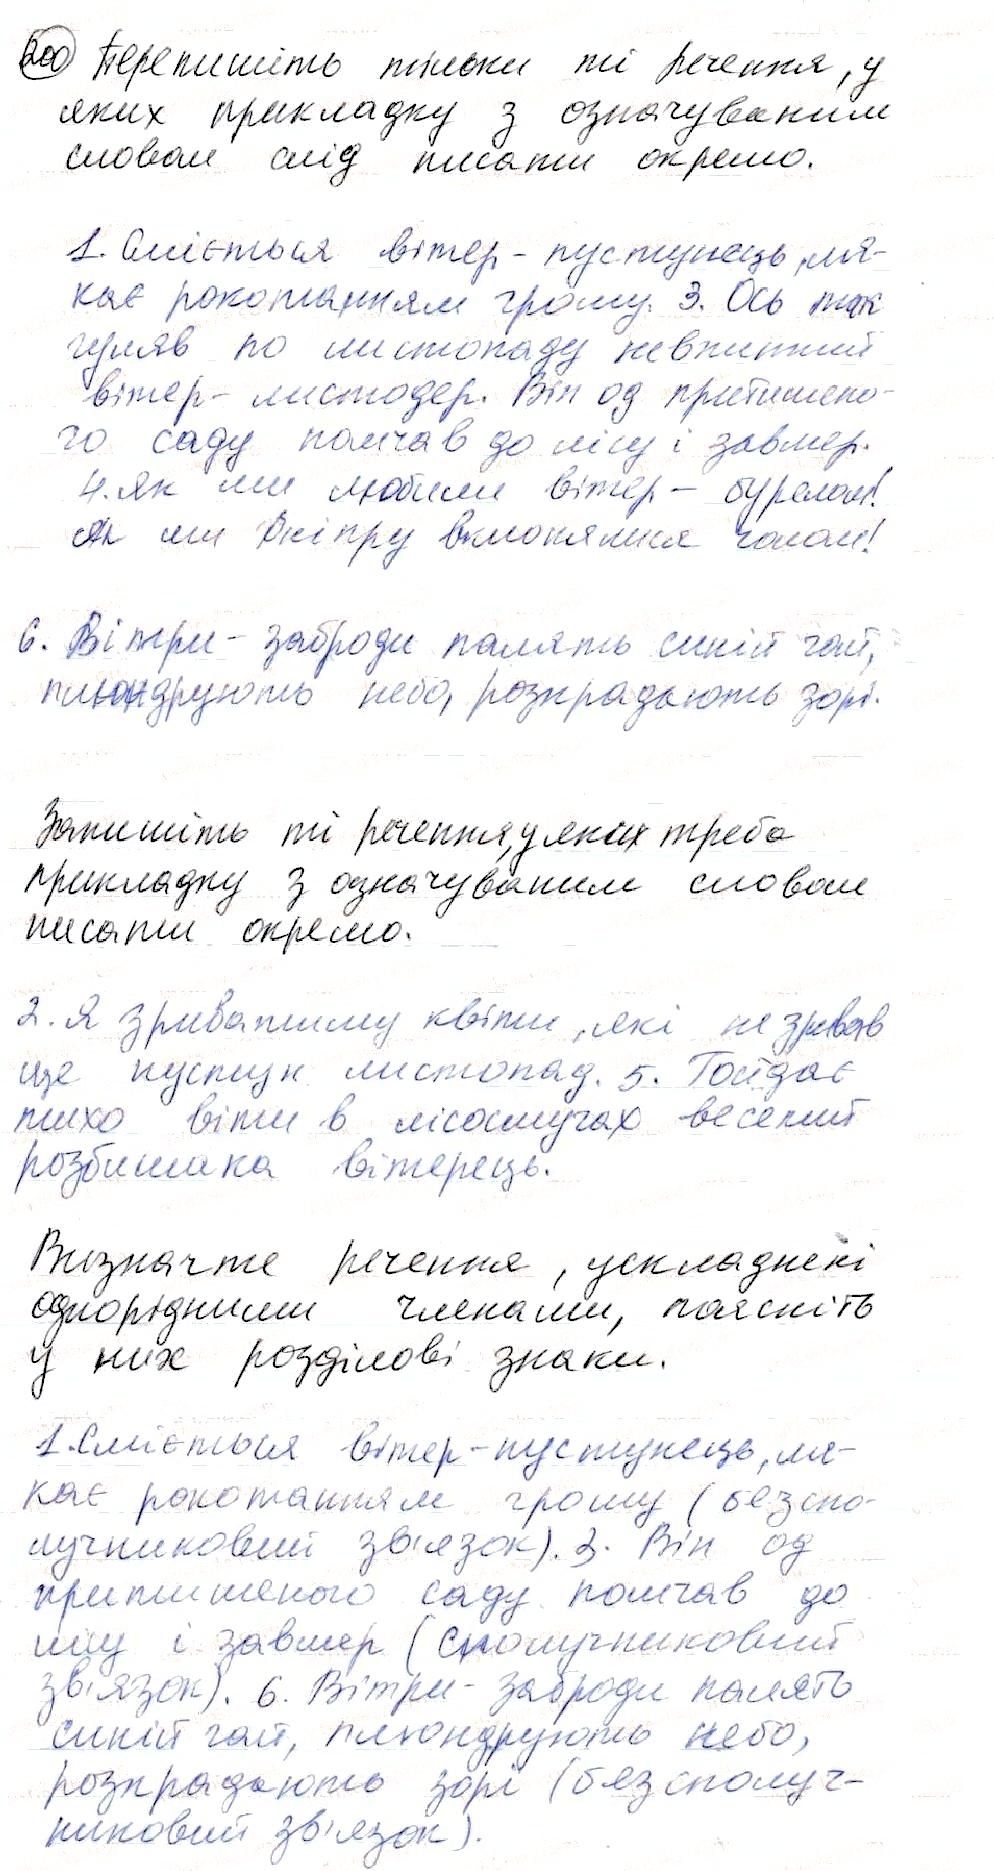 200 Перепишіть тільки ті речення, у
яких прикладку з означуваним
словом слід писати окремо.
1. Сміється вітер - пустунець, ля-
кає рокотанням грому. 3. Ось так
гуляв по листопаду невпинний
вітер - листодер. Він од притишено-
го саду помчав до лісу і завмер.
4. Як ми любили вітер - бурелом!
Як ми Дніпру вклонялися чолом!
6. Вітри - заброди палять синій гай,
плюндрують небо, розкрадають зорі.
Запишіть ті речення, у яких треба
прикладку з означуваним словом
писати окремо.
2. Я зриватиму квіти, які не зривав
ще пустун листопад. 5. Гойдає
тихо віти в лісосмугах веселий
розбишака вітерець.
Визначте речення, ускладнені
однорідними членами, поясніть
у них розділові знаки.
1. Сміється вітер - пустунець, ля-
кає рокотанням грому (безспо-
лучниковий зв'язок). 3. Він од
притишеного саду помчав до
лісу і завмер (сполучниковий
зв'язок). 6. Вітри - заброди палять
синій гай, плюндрують небо,
розкрадають зорі (безсполуч-
никовий зв'язок).